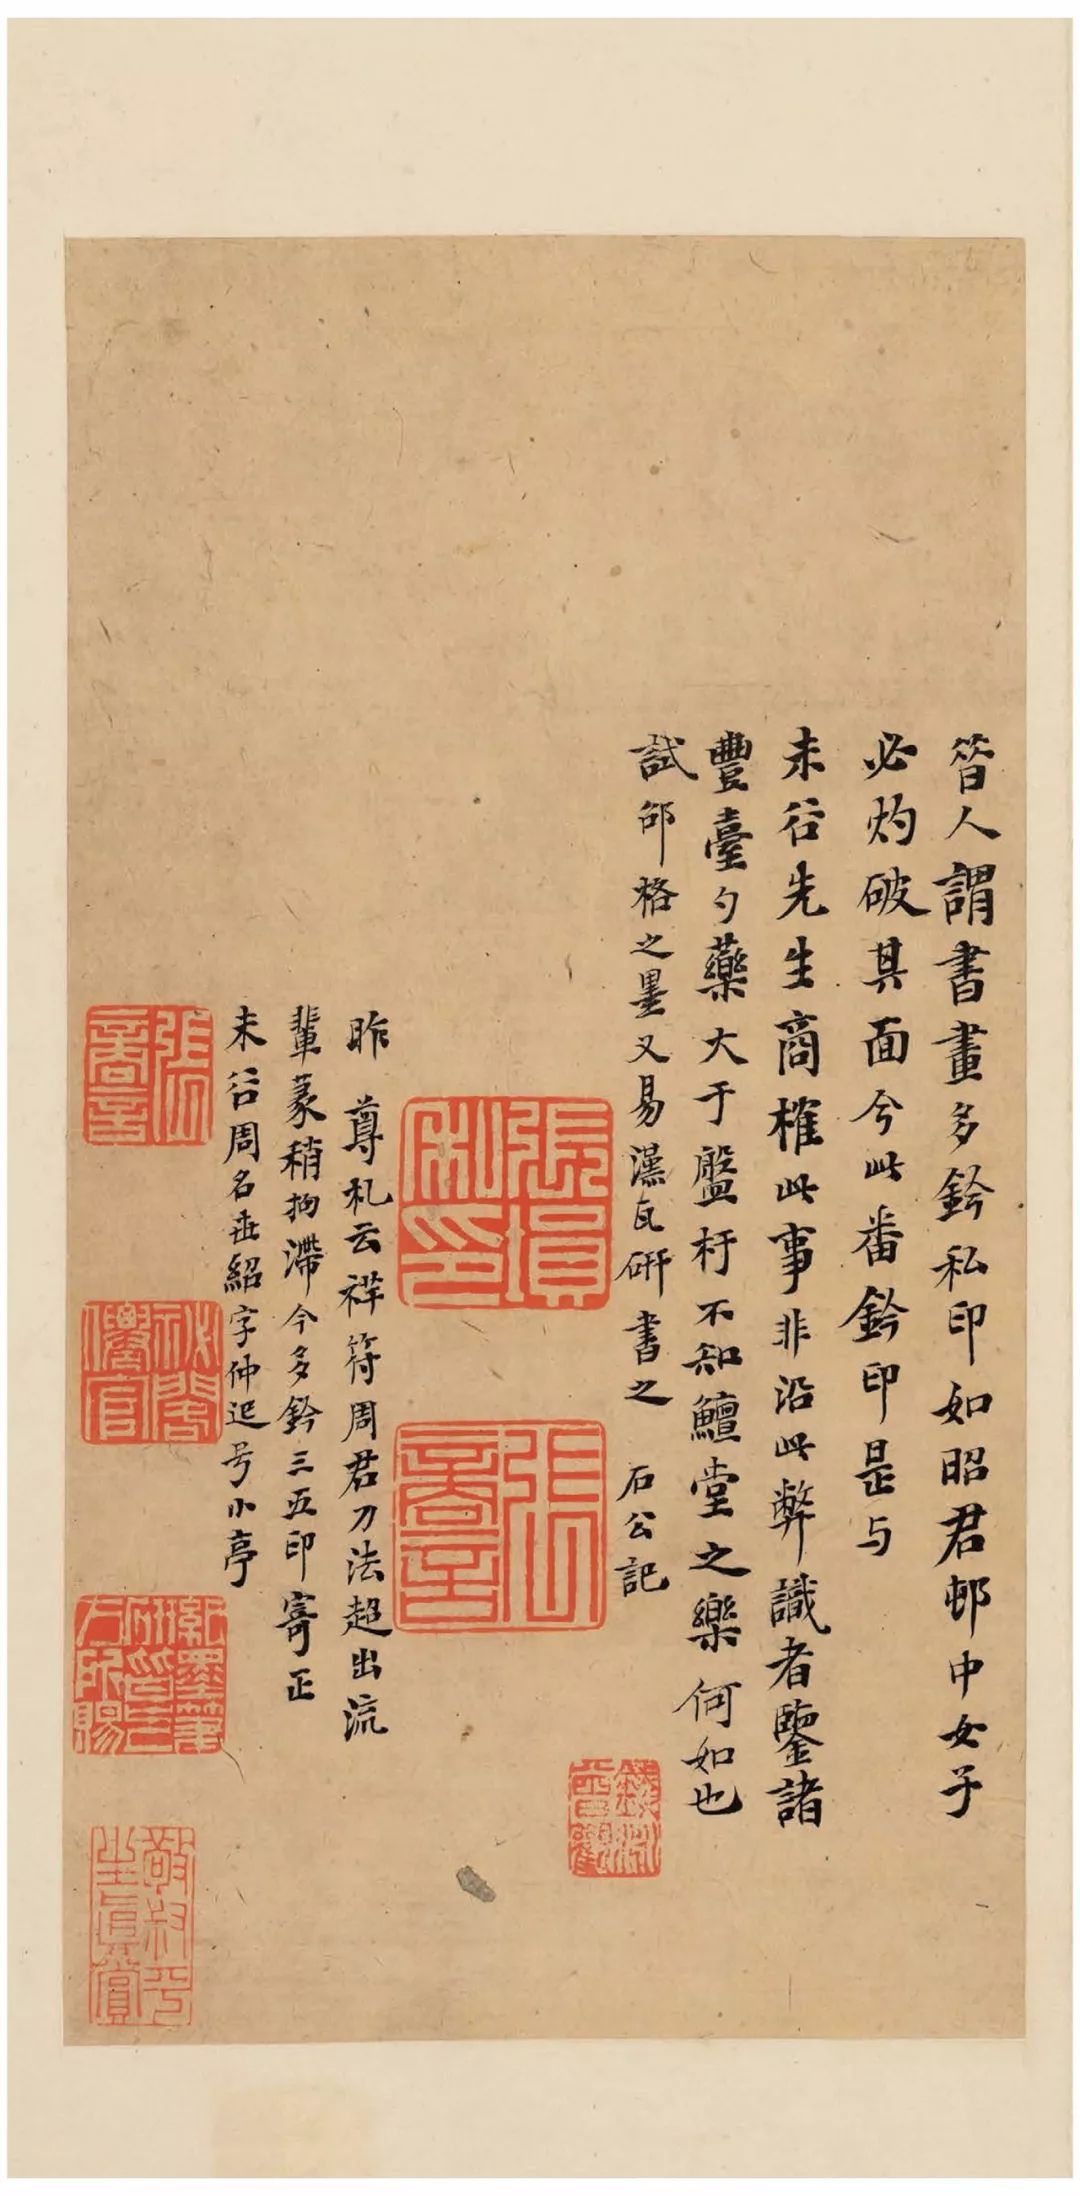 昝人謂書畫多鈐私印如昭君邨中女子
必灼破其面今此番鈐印是与
未谷先生商榷此事非沿此弊識者鑒諸
豐臺勺藥大于盤杅不知鱣堂之樂何如也
試邵格之墨又易漢瓦研書之 石公記
昨 尊札云祥符周君刀法超出流
輩篆稍拘滯今多鈐三五印寄正
未谷周名世紹字仲迟号小亭
張塤私印
張
張
秘閣儤官
敬叔平生真賞